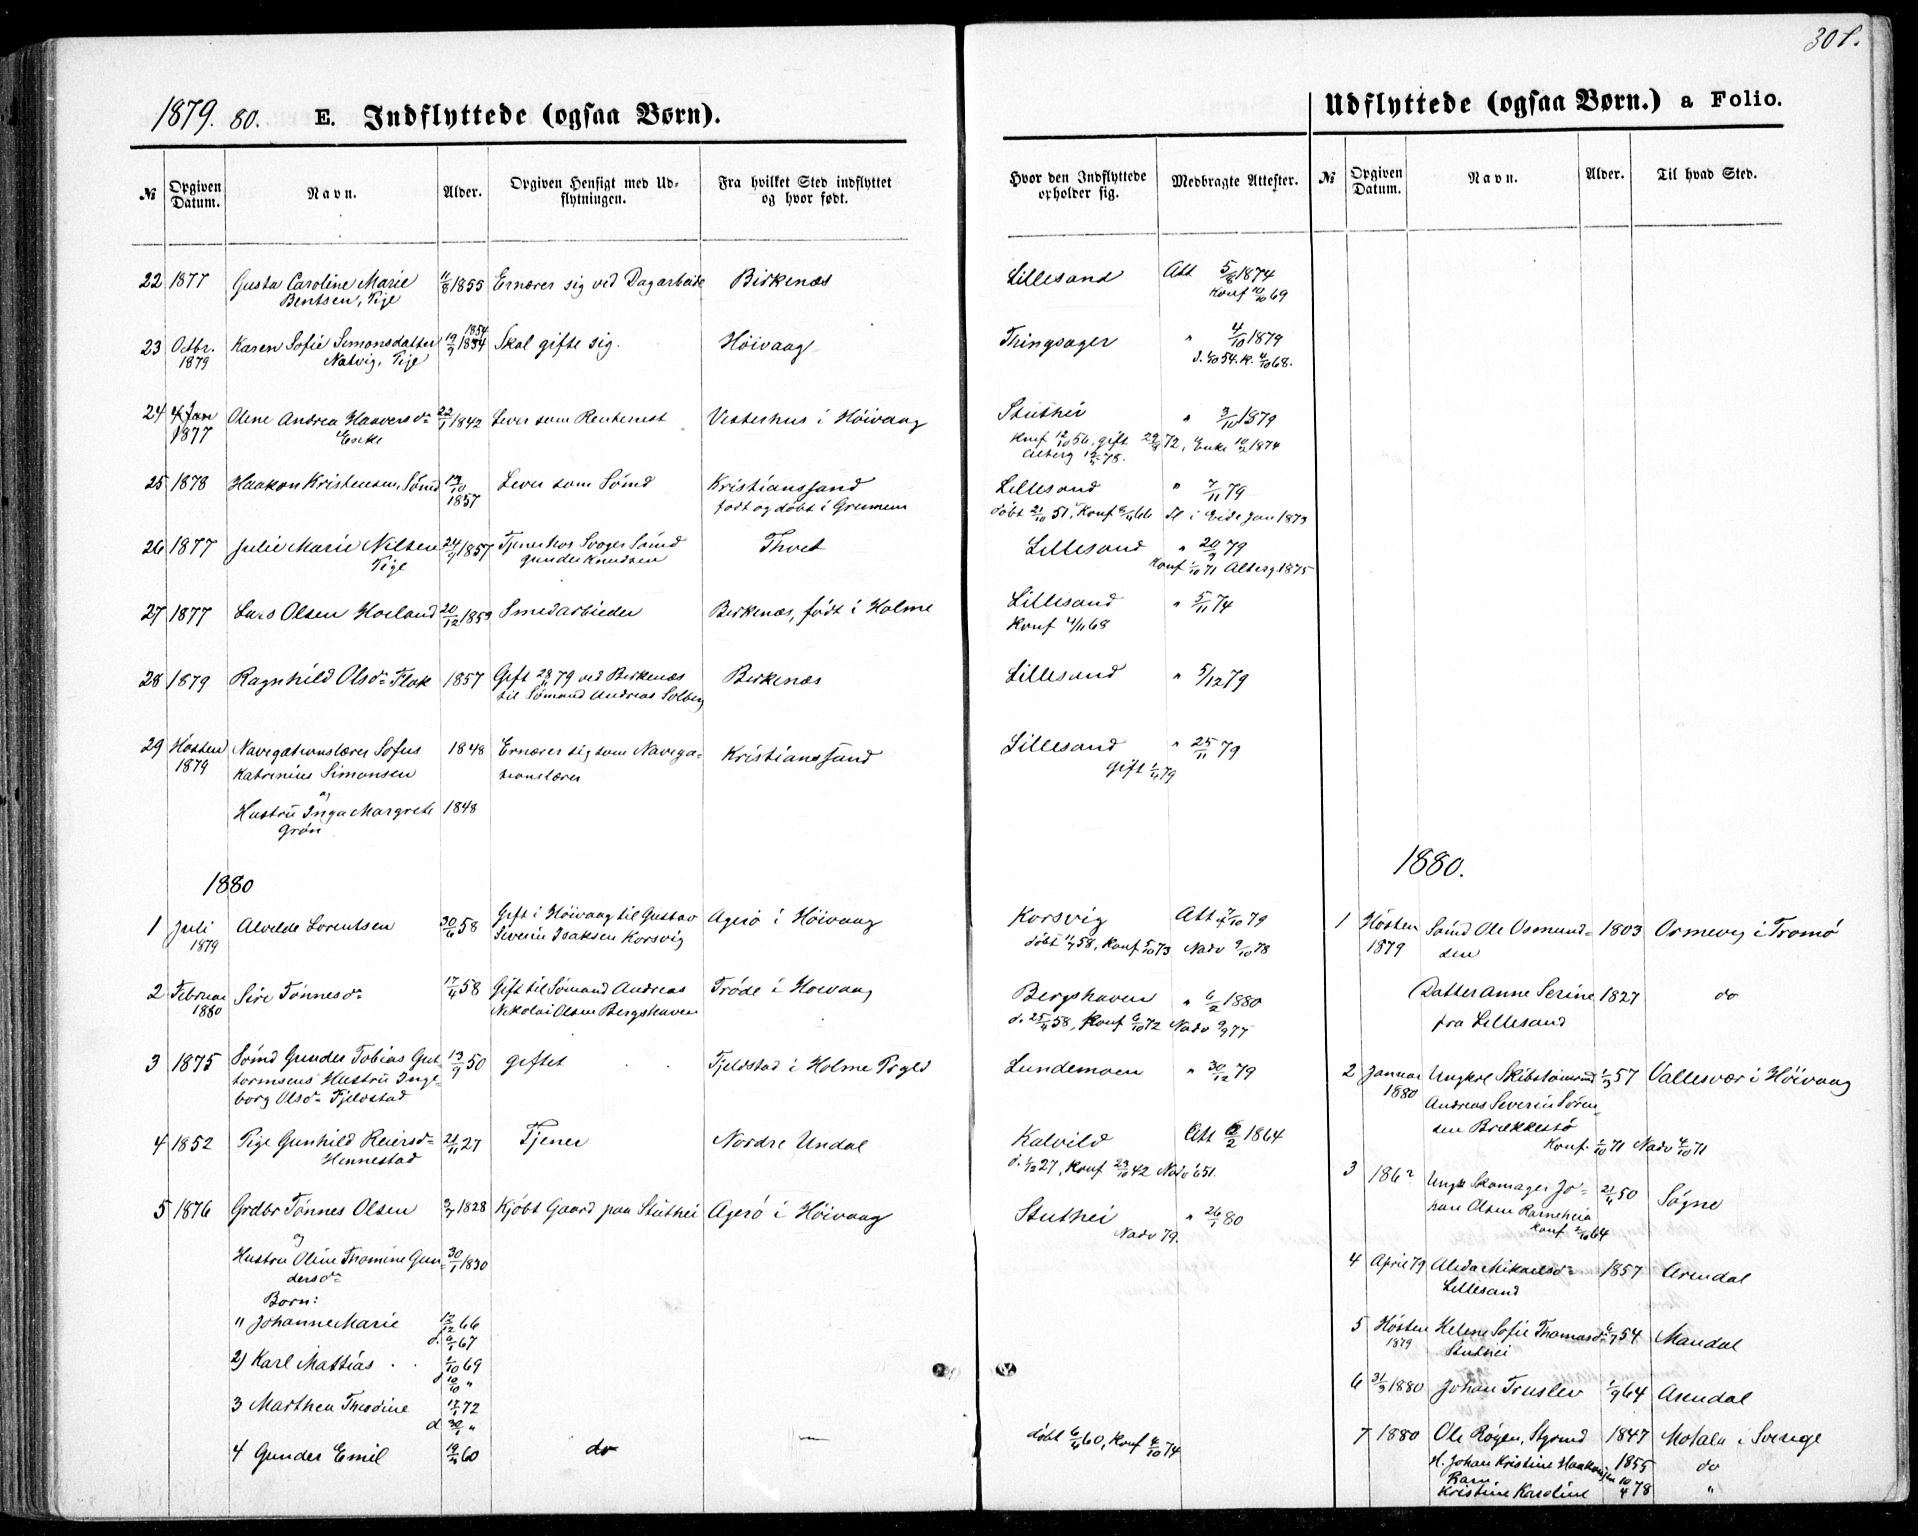 301.
1879. 80. E. Indflyttede (ogsaa Børn).
Udflyttede (ogsaa Børn.) a Folio.
№ Opgiven Datum. Navn. Alder. Opgiven Hensigt med Udflytningen. Fra hvilket Sted indflyttet og hvor født.
Hvor den Indflyttede opholder sig. Medbragte Attester. № Opgiven Datum. Navn. Alder. Til hvad Sted.
22 1877 Gusta Caroline Marie 11/8 1855 Ernærer sig ved Dagarbeide Birkenæs Lillesand Att 5/8 1874
Bentsen, Pige Konf 10/10 69
23 Octbr. Karen Sofie Simonsdatter 1854 Skal gifte sig. Høivaag Thingsager " 4/10 1879
1879 Natvig, Pige
24 Jan Olene Andrea Haaversd= 22/1 1842 Lever som Rentenist Vesterhus i Høivaag Stuthei " 3/10 1879
1877 Enke Konf 12/10 56, gift 72, Enke 1874
25 1878 Haakon Kristensen, Sømd Lever som Sømd Kristianssand Lillesand " 7/11 79
1857 født og døbt i Grumem døbt 21/10 51, Konf 66 St i Eide Jan 1873
26 1877 Julie Marie Nilsen 24/9 1857 Tjener hos Svoger Sømd Thvet Lillesand " 20/9 79
Pige Gunder Knudsen Konf 1/10 71 Alberg 1875
27 1877 Lars Olsen Hoeland 20/12 1853 Smedarbieder Birkenæs, født i Holme Lillesand " 5/11 74
Konf 4/11 68
28 1879 Ragnhild Olsd= Flak 1857 Gift 28/11 79 ved Birkenæs Birkenæs Lillesand " 5/12 79
til Sømand Andreas Solberg
29 Høsten Navigationslærer Sofus 1848 Ernærer sig som Naviga= Kristianssand Lillesand " 25/11 79
1879 Katrinius Simonsen tionslærer Gift 79
og
Hustru Inga Margrete 1848
Grøn
1880
1 Juli Alvilde Lorentsen 30/6 58 Gift i Høivaag til Gustav Agerø i Høivaag Korsvig Att 7/10 79
1879 Severin Isaksen Korsvig døbt 58, Konf 5/10 73 Nadv 9/10 78
2 Februar Sire Tønnesd= 17/4 58 Gift til Sømand Andreas Trøde i Høivaag Bergshaven " 6/2 1880
1880 Nikolai Olsen Bergshaven d. 25/4 58, Konf 6/10 72 Nadv 77
3 1875 Sømd Gunder Tobias Gut= 13/9 50 giftet Fjeldstad i Holme Prgld Lundemoen " 30/12 79
tormsens Hustru Inge=
borg Olsd= Fjeldstad
4 1852 Pige Gunhild Reiersd= 21/11 27 Tjener Nordre Undal Kalvild Att 1864
Hennestad d. 27, Konf 23/10 42 Nadv 51.
5 1876 Grdbr Tønnes Olsen 1828 Kjøbt Gaard paa Stuthei Agerø i Høivaag Stuthei " 26/1 80
og Nadv 79.
Hustru Oline Thomine Gun= 30/1 1830
dersd=
Børn:
" Johanne Marie 66
d. 67
2) Karl Mattias 1/10 69
d 10/10 "
3 Marthea Thesdine 17/1 72
d 30/1 "
4 Gunder Emil 60 do døbt 6/4 60, Konf 4/10 74
1880.
1 Høsten Sømd Ole Osmund= 1803 Ormevig i Tromø
1879 sen
Datter Anne Serine 1827 do
fra Lillesand
2 Januar Ungkrl Skibstømmd 57 Vallesvær i Høivaag
1880 Andreas Severin Søren=
sen Brækkestø
Konf. 1/10 71 Nadv 4/10 71
3 Ungk Skomager Jo= 21/4 50 Søgne
han Olsen Ramsheia
Konf 2/10 64
4 April 79 Alida Mikaelsd= 1857 Arendal
Lillesand
5 Høsten Helene Sofie Thomasd= 54 Mandal
1879 Stuthei
6 31/3 1880 Johan Truslev 1/9 64 Arendal
7 1880 Ole Røyen, Styrmd 1847 Motala i Sverige
H. Johan Kristine Haakonsen 1855 do
Barn
Kristine Karoline 10/4 78 "